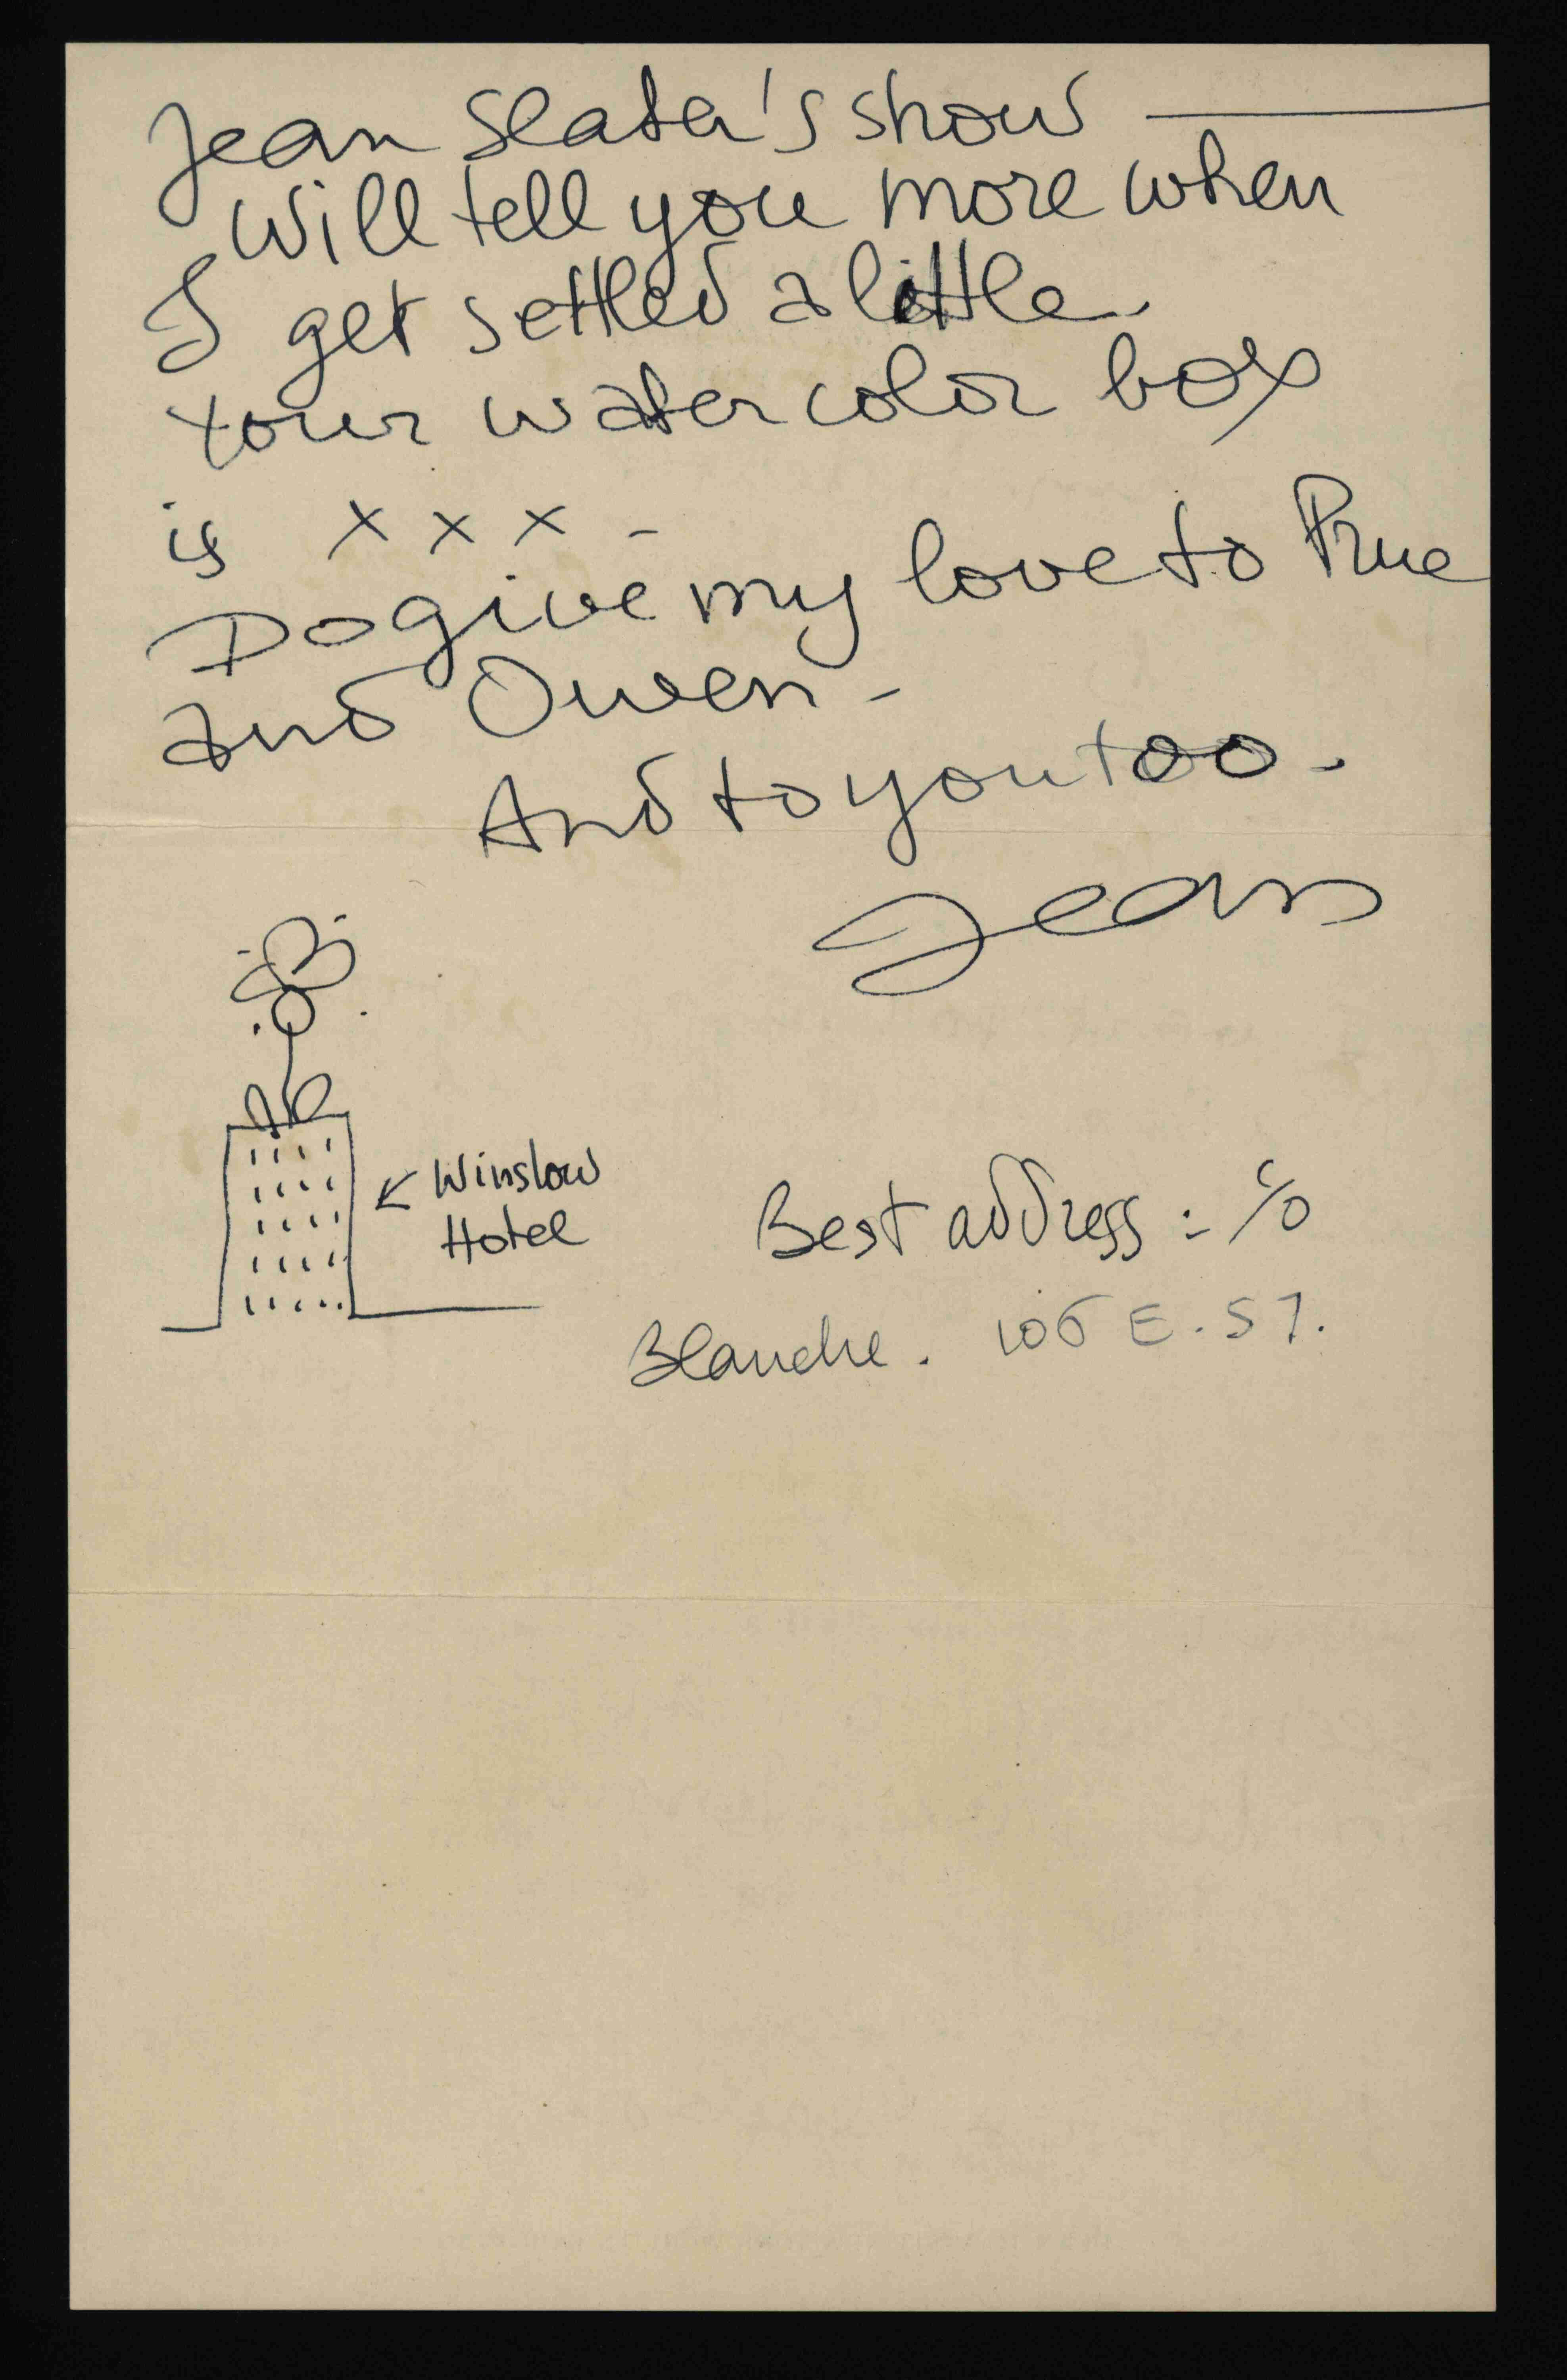 Jean Slater's show —
Will tell you more when
I get settled a little.
Your water color box
is x x x -
Do give my love to Prue
and Owen -
And to you too -
Jean
Winslow
Hotel
Best address : c/o
Blanche. 106 E. 57.